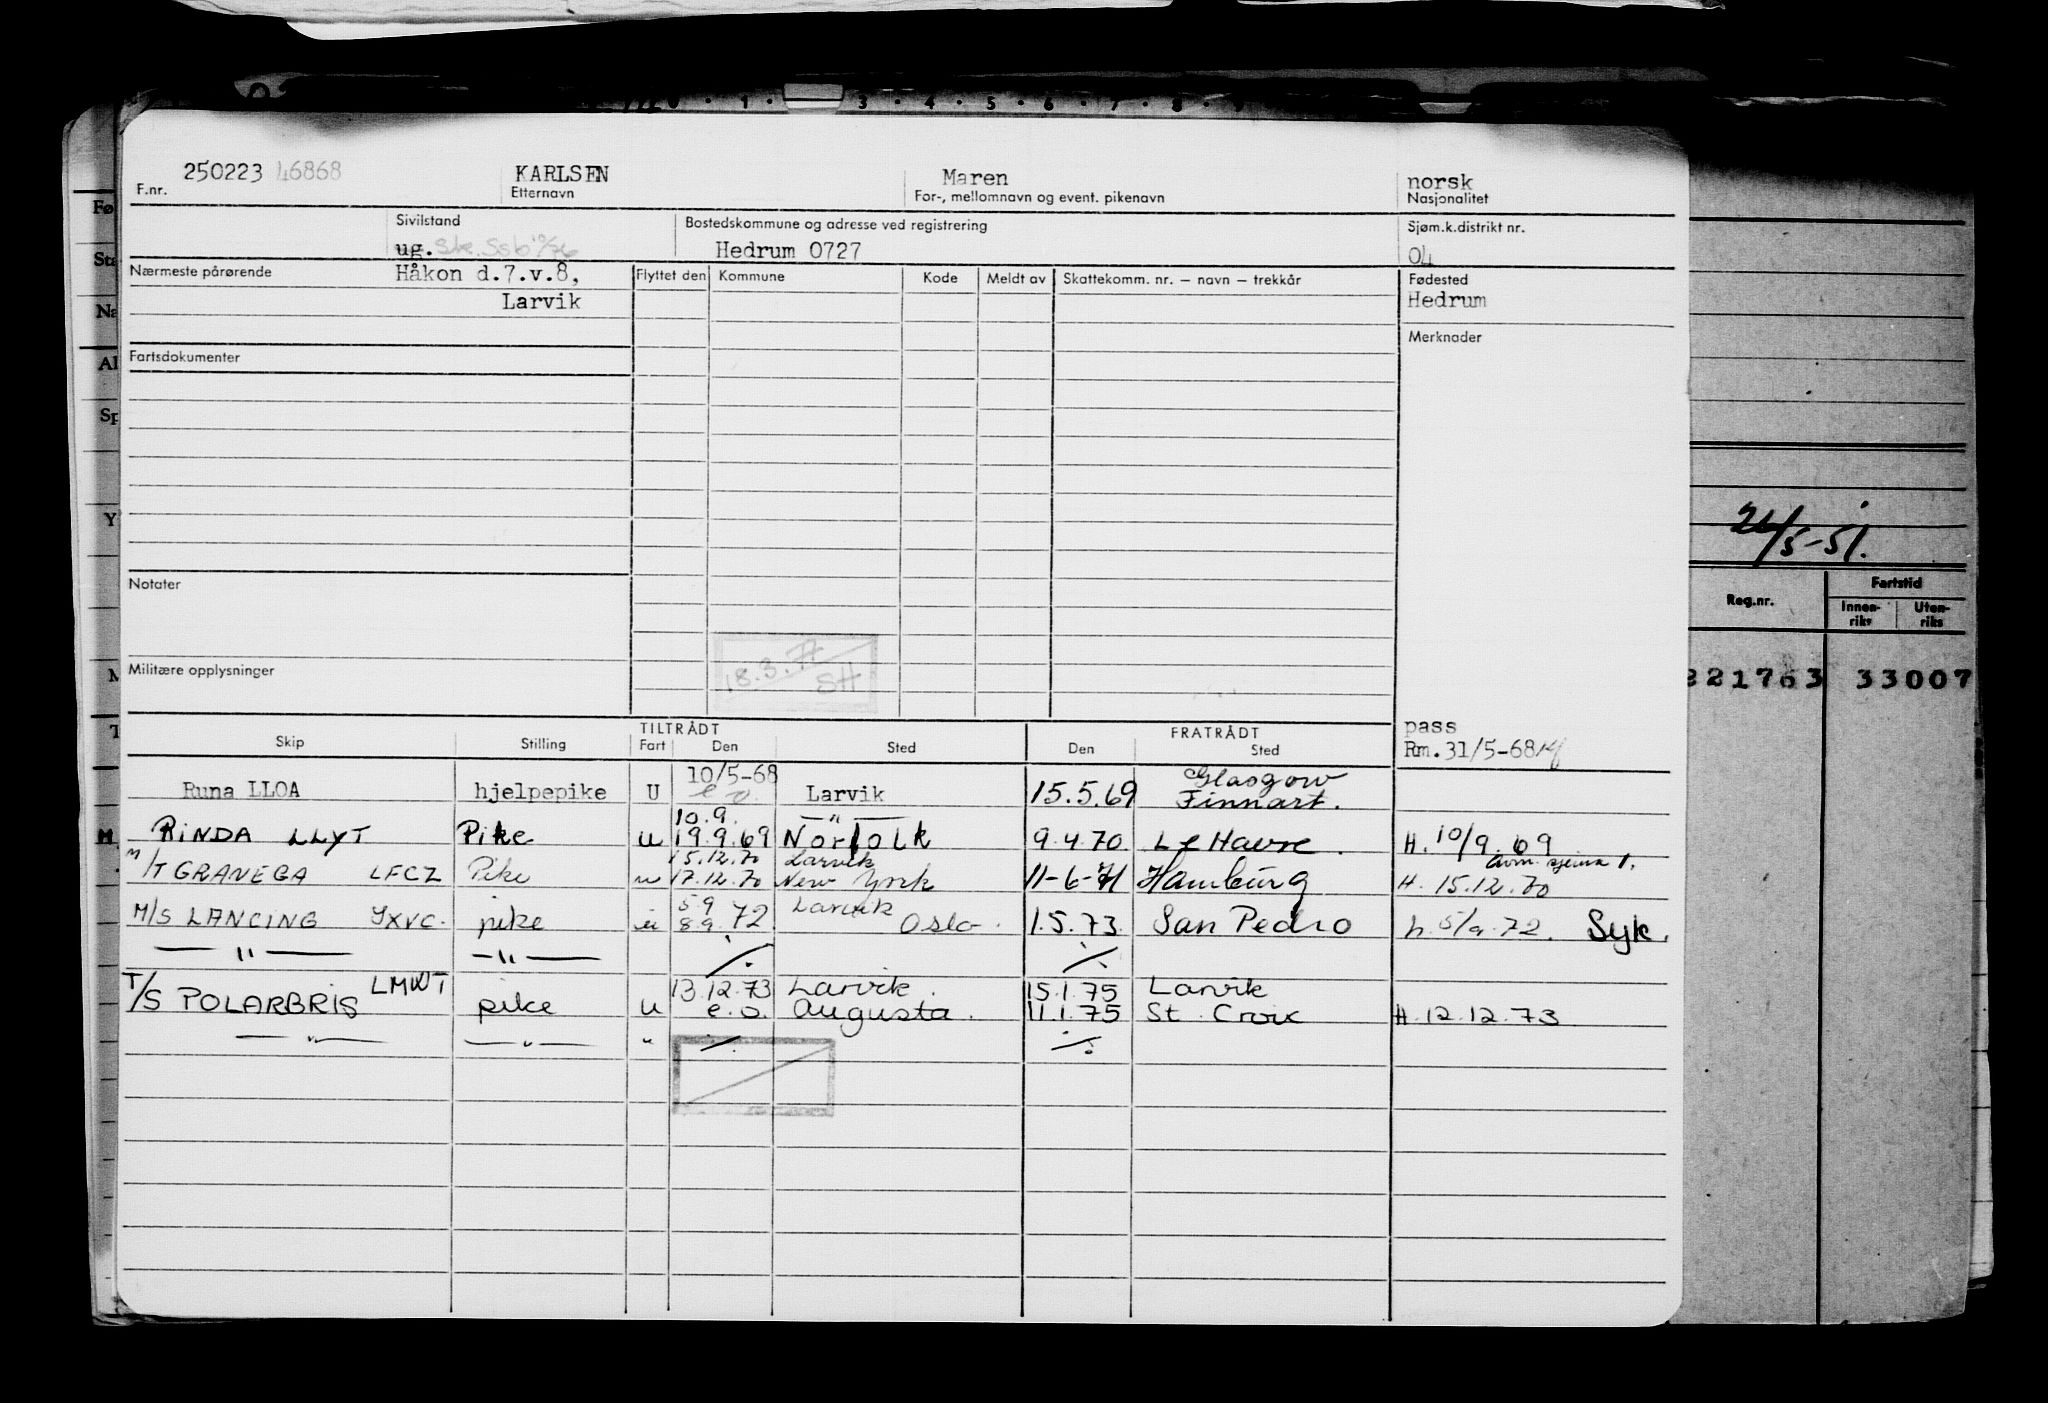 0 · 1 · 3 · 4 · 5 · 6 · 7 · 8 · 9
250223 46868 KARLSEN Maren norsk
F.nr. Etternavn For-, mellomnavn og event. pikenavn Nasjonalitet
Sivilstand Bostedskommune og adresse ved registrering Sjøm.k.distrikt nr.
ug. Hedrum 0727 04
Nærmeste pårørende Håkon d.7.v.8, Flyttet den Kommune Kode Meldt av Skattekomm. nr. — navn — trekkår Fødested
Larvik Hedrum
Merknader
Fartsdokumenter
Notater
Militære opplysninger
18.3.77
SH
pass
Rm.31/5-68
TILTRÅDT FRATRÅDT
Skip Stilling Fart Den Sted Den Sted
10/5-68 Glasgow
Runa LLOA hjelpepike U e o. Larvik 15.5.69 Finnart.
10.9. — " —
RINDA LLYT Pike u 19.9.69 Norfolk 9.4.70 Le Havre. H. 10/9.69
15.12.70 Larvik
M/T GRANEGA LFCZ Pike u 17.12.70 New York 11-6-71 Hamburg H. 15.12.70
5 9 Larvik
M/S LANCING JXVC. pike u 8 9. 72 Oslo. 1.5.73. San Pedro h. 5/9.72. Syk.
— " — — " — ./. ./.
LMWT 13.12.73 Larvik. 15.1.75 Larvik
T/S POLARBRIS pike u e.o. Augusta. 11.1.75 St. Croix H.12.12.73
— " — — " — " ./. ./.
Fø
Sta
Na
Al
Sp
Y
M
T
M
24/5-51.
Reg.nr. Fartstid
Innen-riks Uten-riks
221763 33007